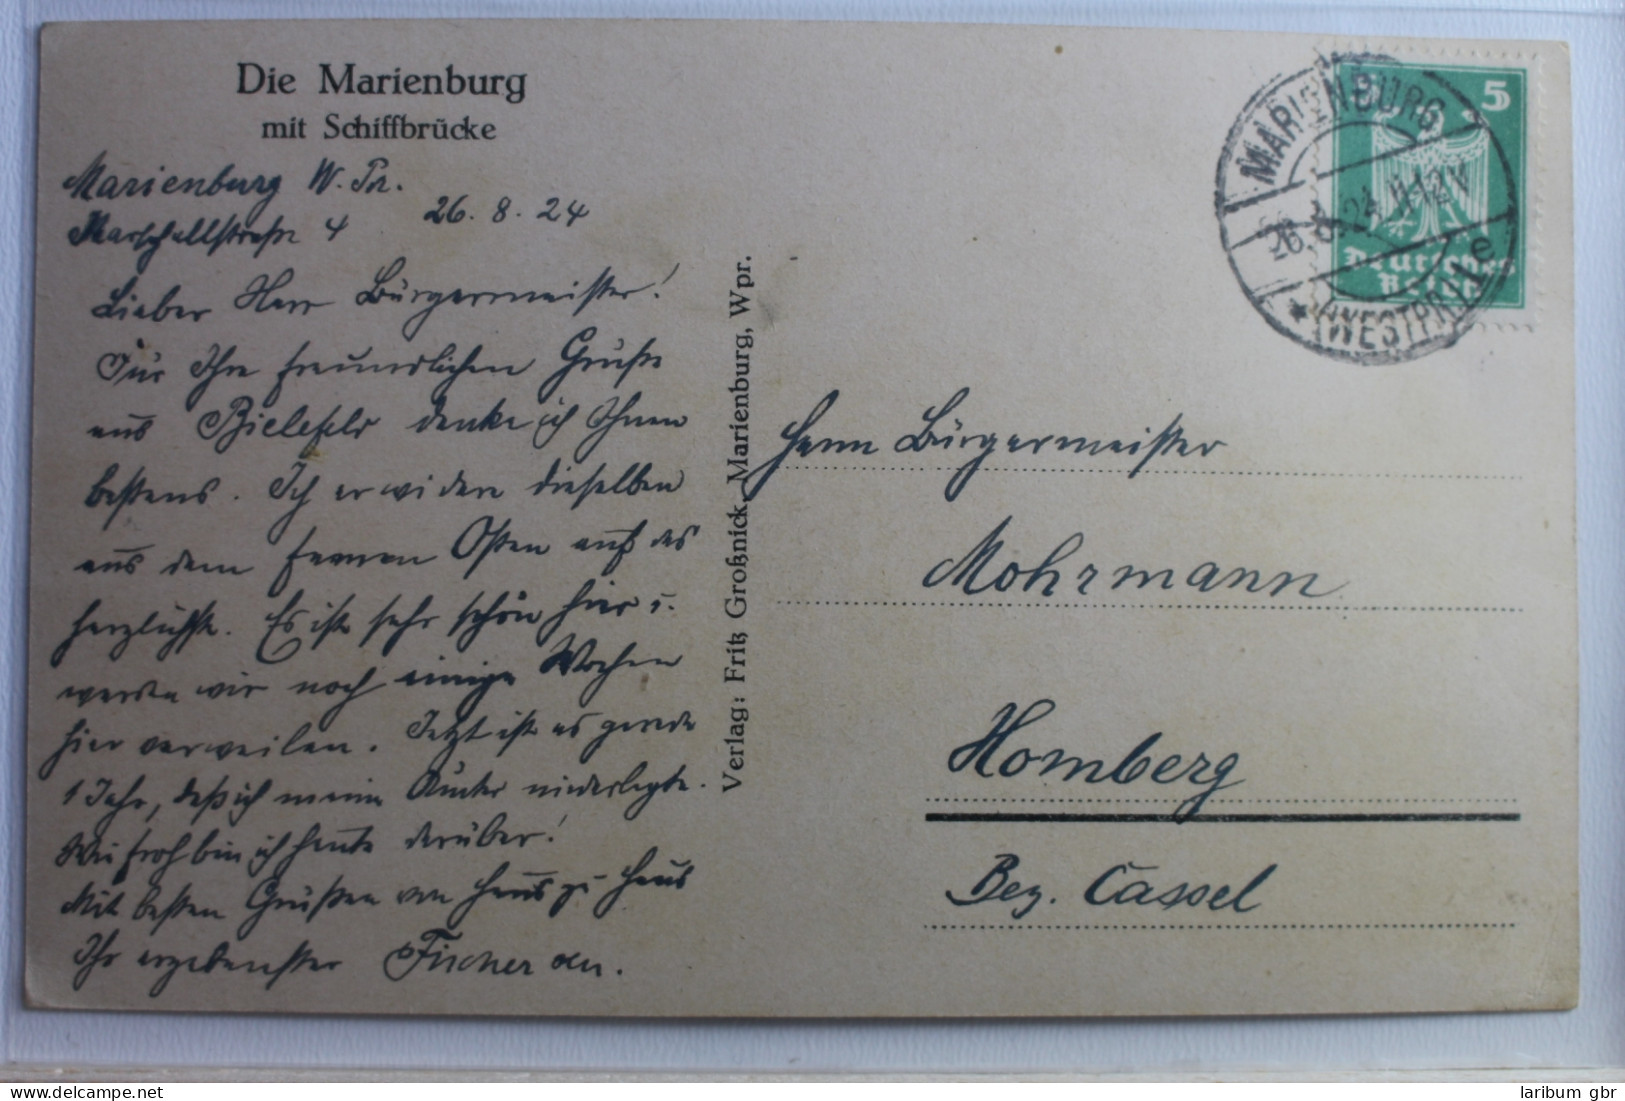 Die Marienburg
mit Schiffbrücke
Marienburg W. Pr.
Marschallstraße 4 26. 8. 24
Lieber Herr Bürgermeister!
Für Ihre freundlichen Grüße
aus Bielefeld danke ich Ihnen
bestens. Ich erwidere dieselben
aus dem fernen Osten auf das
herzlichste. Es ist sehr schön hier u.
werden wir noch einige Wochen
hier verweilen. Jetzt ist es gerade
1 Jahr, daß ich meine Ämter niederlegte.
Wie froh bin ich heute darüber!
Mit besten Grüßen von Haus zu Haus
Ihr ergebenster Fischer
Verlag: Fritz Großnick, Marienburg, Wpr.
MARIENBURG
26. 8. 24. 11-12 V
* (WESTPR.) e
5
Deutsches
Reich
Herrn Bürgermeister
Mohrmann
Homberg
Bez. Cassel
laribum gbr